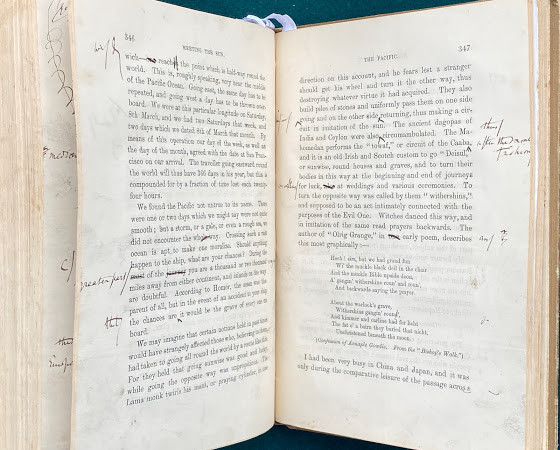 346
MEETING THE SUN.
wich reach the point which is half-way round the
world. This is, roughly speaking, very near the middle
of the Pacific Ocean. Going east, the same day has to be
repeated, and going west a day has to be thrown over-
board. We were at this particular longitude on Saturday,
8th March, and we had two Saturdays that week, and
two days which we dated 8th of March that month. By
means of this operation our day of the week, as well as
the day of the month, agreed with the date at San Fran-
cisco on our arrival. The traveller going eastward round
the world will thus have 366 days in his year, but this is
compounded for by a fraction of time lost each twenty-
four hours.
We found the Pacific not untrue to its name. There
were one or two days which we might say were not quite
smooth; but a storm, or a gale, or even a rough sea, we
did not encounter the whole way. Crossing such a vast
ocean is apt to make one moralise. Should anything
happen to the ship, what are your chances? During the
most of the you are a thousand or two thousand
miles away from either continent, and islands in the way
are doubtful. According to Homer, the ocean was the
parent of all, but in the event of an accident to your ship
the chances are it would be the grave of every one on
board.
We may imagine that certain actions held in past times
would have strangely affected those who, believing in them,
had taken to going all round the world by a route like this.
For they held that going sunwise was good and holy,
while going the opposite way was unpropitious. The
Lama monk twirls his mani, or praying cylinder, in one
greater part
that
THE PACIFIC.
347
direction on this account, and he fears lest a stranger
should get his wheel and turn it the other way, thus
destroying whatever virtue it had acquired. They also
build piles of stones and uniformly pass them on one side
going and on the other side returning, thus making a cir-
cuit in imitation of the sun. The ancient dagopas of
India and Ceylon were also circumambulated. The Ma-
homedan performs the "towaf," or circuit of the Caaba,
and it is an old Irish and Scotch custom to go "Deisul,"
or sunwise, round houses and graves, and to turn their
bodies in this way at the beginning and end of journeys
for luck, at weddings and various ceremonies. To
turn the opposite way was called by them "withershins,"
and supposed to be an act intimately connected with the
purposes of the Evil One. Witches danced this way, and
in imitation of the same read prayers backwards. The
author of "Olrig Grange," in early poem, describes
this most graphically:—
Hech! sirs, but we had grand fun
Wi' the muckle black deil in the chair
And the muckle Bible upside doun,
A' gangin' withershins roun' and roun',
And backwards saying the prayer.
About the warlock's grave,
Withershins gangin' round;
And kimmer and carline had for licht
The fat o' a bairn they buried that nicht,
Unchristened beneath the moon.
(Confession of Annaple Gowdie. From the "Bishop's Walk.")
I had been very busy in China and Japan, and it was
only during the comparative leisure of the passage across